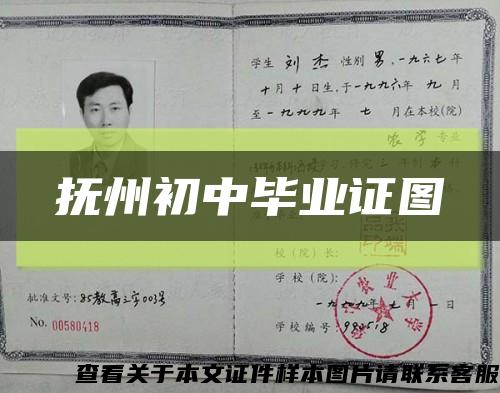 学生 刘 杰 性别 男，一九六七年
十月十日生，于一九九六年 九 月
至一九九九年 七 月在本校(院)
农学 专业
学习，修完 三 年制 本 科
抚州初中毕业证图
校（院）长：
学 校（院）：
批准文号：85教高三字003号
一九九九年七月一日
No. 00580418
学校编号：994518
查看关于本文证件样本图片请联系客服